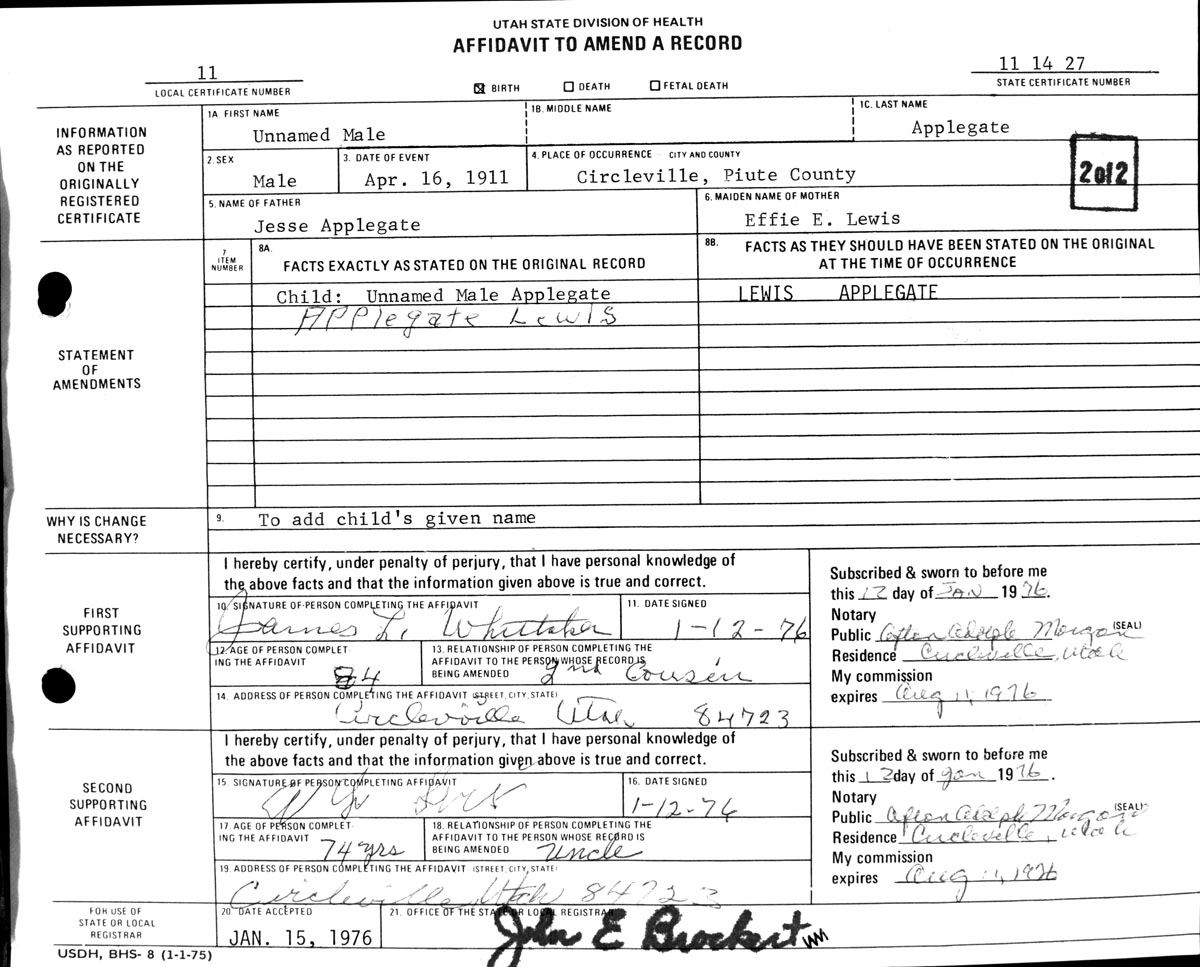 UTAH STATE DIVISION OF HEALTH
AFFIDAVIT TO AMEND A RECORD
11
LOCAL CERTIFICATE NUMBER
☒ BIRTH ☐ DEATH ☐ FETAL DEATH
11 14 27
STATE CERTIFICATE NUMBER
INFORMATION
AS REPORTED
ON THE
ORIGINALLY
REGISTERED
CERTIFICATE
1A. FIRST NAME
Unnamed Male
1B. MIDDLE NAME
1C. LAST NAME
Applegate
2. SEX
Male
3. DATE OF EVENT
Apr. 16, 1911
4. PLACE OF OCCURRENCE - CITY AND COUNTY
Circleville, Piute County
2 of 2
5. NAME OF FATHER
Jesse Applegate
6. MAIDEN NAME OF MOTHER
Effie E. Lewis
STATEMENT
OF
AMENDMENTS
7
ITEM
NUMBER
8A.
FACTS EXACTLY AS STATED ON THE ORIGINAL RECORD
8B. FACTS AS THEY SHOULD HAVE BEEN STATED ON THE ORIGINAL
AT THE TIME OF OCCURRENCE
Child: Unnamed Male Applegate
LEWIS APPLEGATE
Applegate Lewis
WHY IS CHANGE
NECESSARY?
9. To add child's given name
FIRST
SUPPORTING
AFFIDAVIT
I hereby certify, under penalty of perjury, that I have personal knowledge of
the above facts and that the information given above is true and correct.
10. SIGNATURE OF PERSON COMPLETING THE AFFIDAVIT
James L. Whittaker
11. DATE SIGNED
1-12-76
12. AGE OF PERSON COMPLET-
ING THE AFFIDAVIT 84
13. RELATIONSHIP OF PERSON COMPLETING THE
AFFIDAVIT TO THE PERSON WHOSE RECORD IS
BEING AMENDED 2nd Cousin
14. ADDRESS OF PERSON COMPLETING THE AFFIDAVIT (STREET, CITY, STATE)
Circleville Utah 84723
Subscribed & sworn to before me
this 12 day of JAN 1976.
Notary
Public Afton Adolph Morgan (SEAL)
Residence Circleville, Utah
My commission
expires Aug 11, 1976
SECOND
SUPPORTING
AFFIDAVIT
I hereby certify, under penalty of perjury, that I have personal knowledge of
the above facts and that the information given above is true and correct.
15 SIGNATURE OF PERSON COMPLETING AFFIDAVIT
16. DATE SIGNED
1-12-76
17. AGE OF PERSON COMPLET-
ING THE AFFIDAVIT 74 yrs
18. RELATIONSHIP OF PERSON COMPLETING THE
AFFIDAVIT TO THE PERSON WHOSE RECORD IS
BEING AMENDED Uncle
19. ADDRESS OF PERSON COMPLETING THE AFFIDAVIT (STREET, CITY, STATE)
Circleville, Utah 84723
Subscribed & sworn to before me
this 12 day of Jan 1976.
Notary
Public Afton Adolph Morgan (SEAL)
Residence Circleville, Utah
My commission
expires Aug 11, 1976
FOR USE OF
STATE OR LOCAL
REGISTRAR
20. DATE ACCEPTED
JAN. 15, 1976
21. OFFICE OF THE STATE OR LOCAL REGISTRAR
John E Brockert
USDH, BHS- 8 (1-1-75)